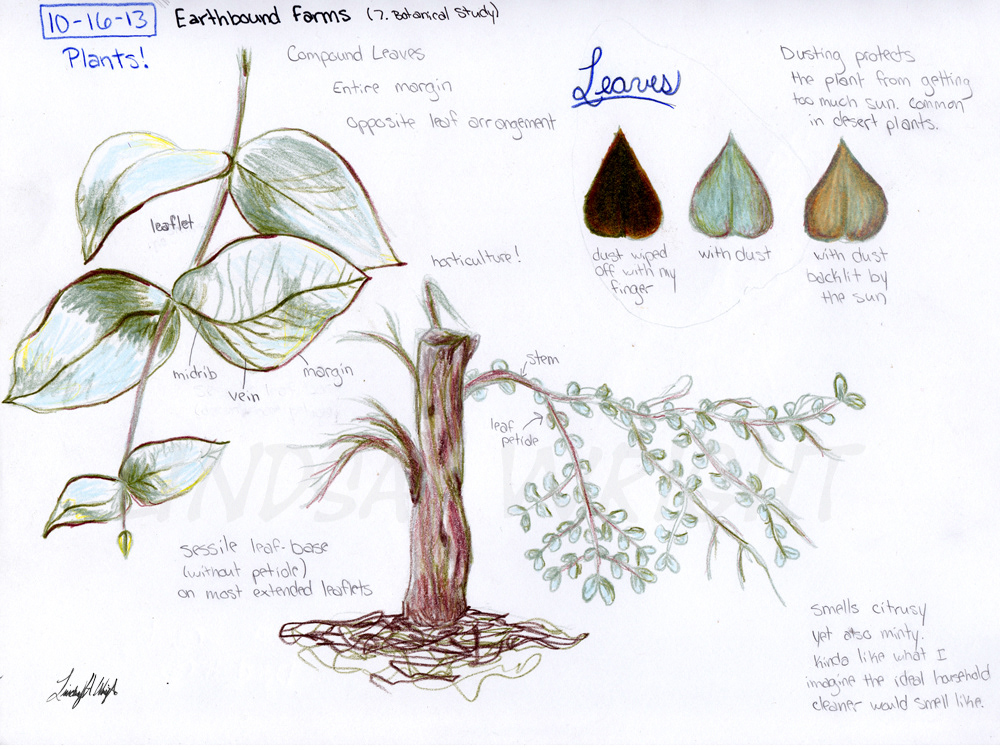 10-16-13 Earthbound Farms (7. Botanical Study)
Plants!
Compound Leaves
Entire margin
opposite leaf arrangement
Leaves
Dusting protects
the plant from getting
too much sun. Common
in desert plants.
leaflet
dust wiped
off with my
finger
with dust
with dust
backlit by
the sun
horticulture!
midrib
vein
margin
stem
leaf
petiole
LINDSAY WRIGHT
sessile leaf-base
(without petiole)
on most extended leaflets
smells citrusy
yet also minty.
kinda like what I
imagine the ideal household
cleaner would smell like.